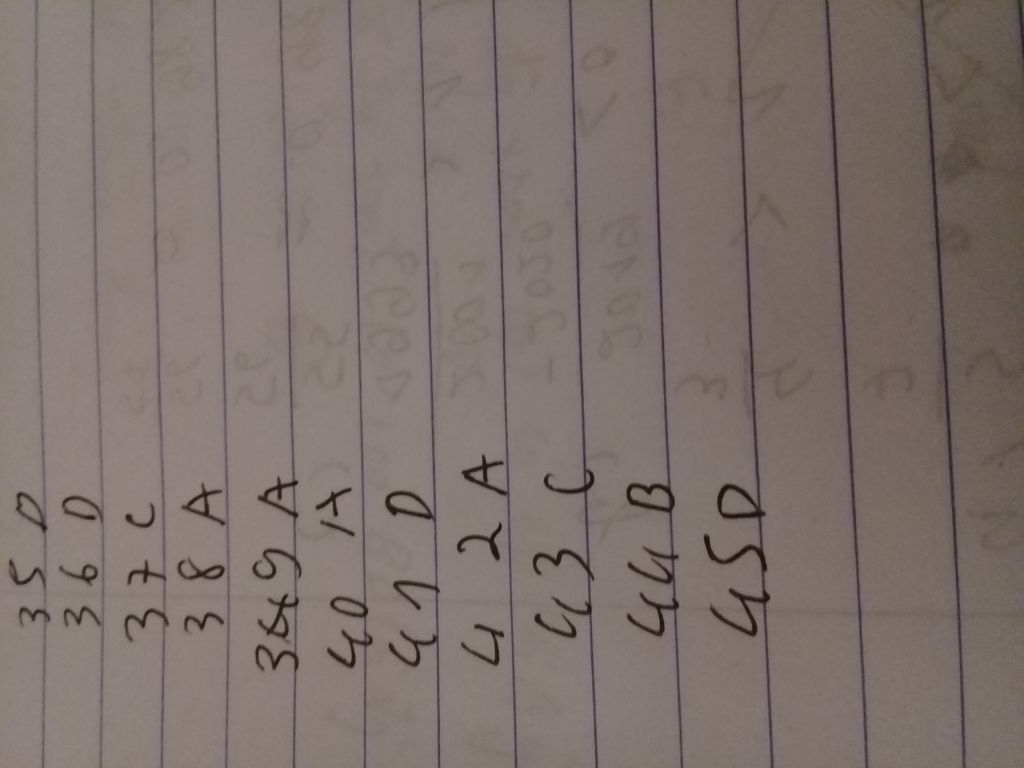 35 D
36 D
37 C
38 A
39 A
40 A
41 D
42 A
43 C
44 B
45 D